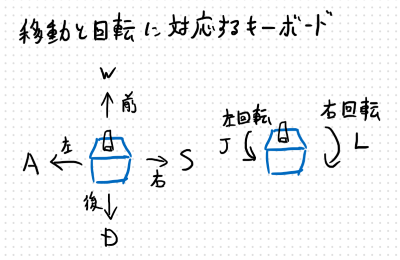 移動と回転に対応するキーボード
W
前
左
A
S
右
後
D
左回転
J
右回転
L